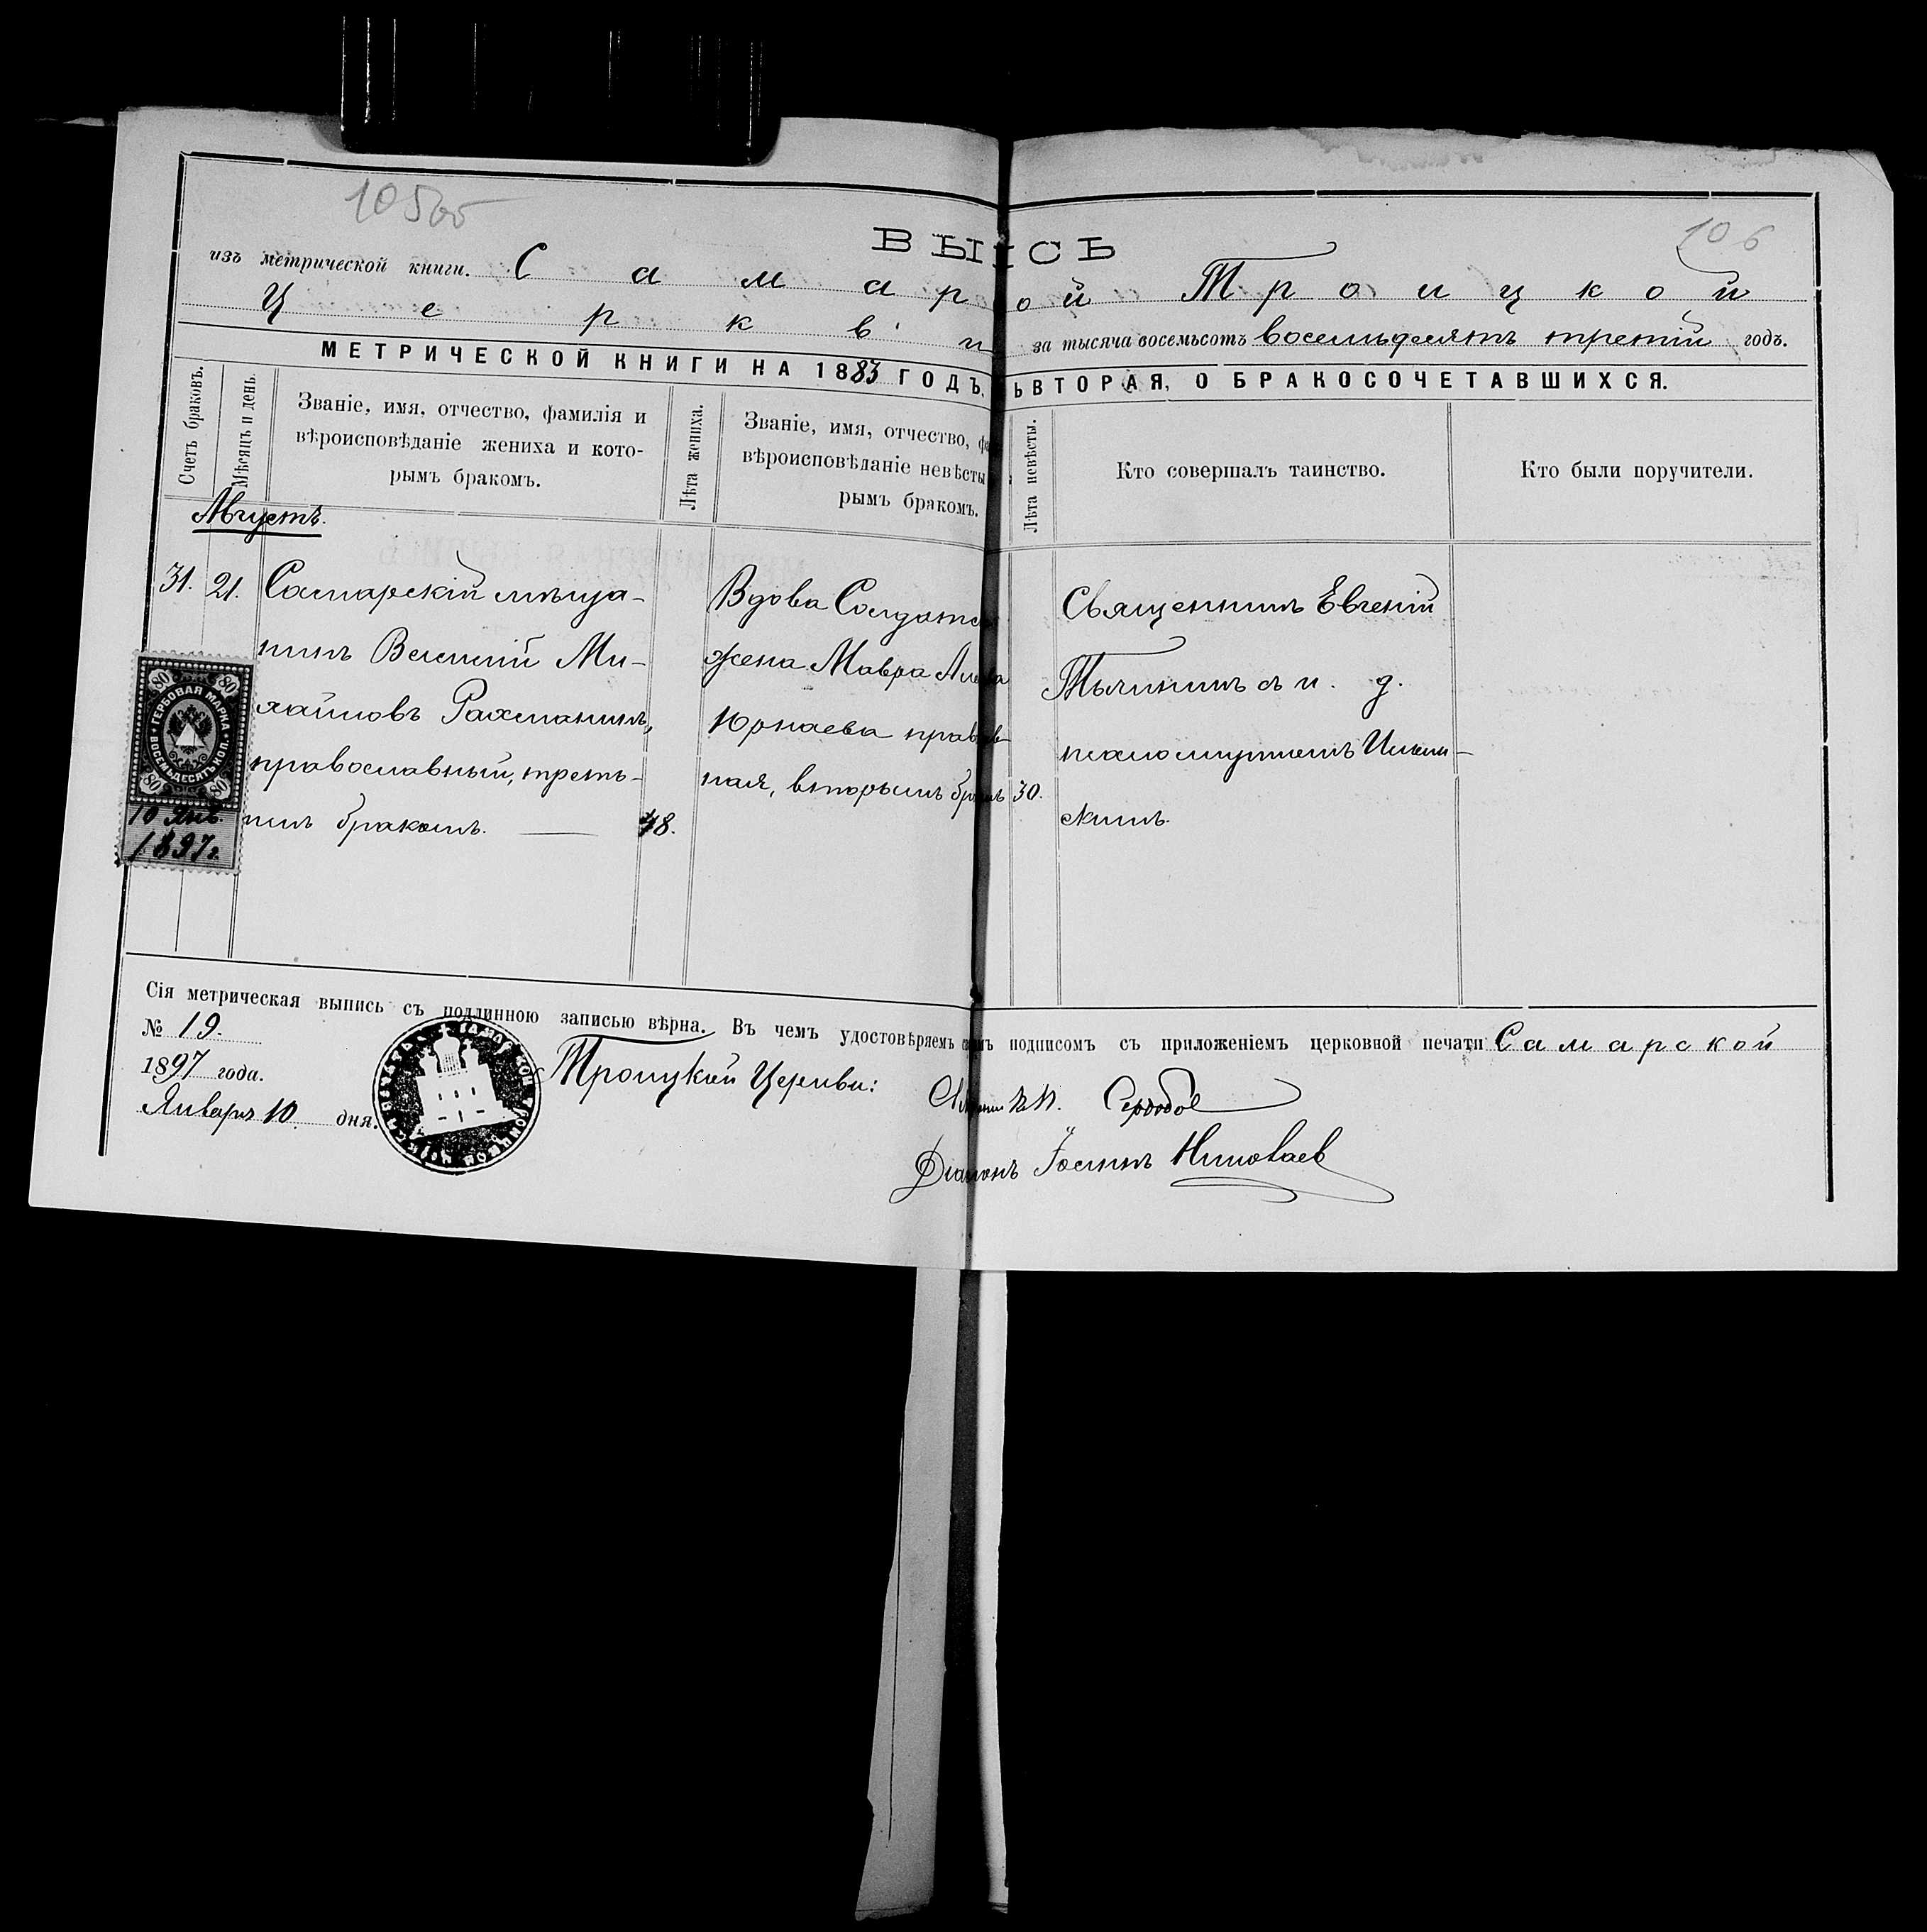 105об
106
ВЫ СЬ
изъ метрической книги. Самар ой Троицкой
Церкви за тысяча восемьсотъ восемьдесятъ третій годъ.
МЕТРИЧЕСКОЙ КНИГИ НА 1883 ГОДЪ, Ь ВТОРАЯ, О БРАКОСОЧЕТАВШИХСЯ.
Счетъ браковъ.
Мѣсяцъ и день.
Званіе, имя, отчество, фамилія и
вѣроисповѣданіе жениха и кото-
рымъ бракомъ.
Лѣта жениха.
Званіе, имя, отчество,
вѣроисповѣданіе невѣсты
рымъ бракомъ.
Лѣта невѣсты.
Кто совершалъ таинство.
Кто были поручители.
Августъ.
31. 21.
Самарскій мѣща-
нинъ Василій Ми-
хайловъ Рахманинъ,
православный, треть-
имъ бракомъ. — 48.
Вдова Солдатск
жена Мавра
Юрнаева прав
ная, вторымъ бр мъ 30.
Священникъ Евгеній
съ и. д.
псаломщикомъ
скимъ.
ГЕРБОВАЯ МАРКА
ВОСЕМЬДЕСЯТЪ КОП.
80 80 80 80
10 Янв.
1897 г.
Сія метрическая выпись съ подлинною записью вѣрна. Въ чемъ удостовѣряемъ подписомъ съ приложеніемъ церковной печати Самарской
Троицкой Церкви:
№ 19.
1897 года.
Января 10. дня.
Діаконъ Іоаннъ Николаев